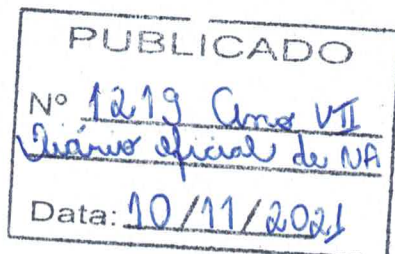 PUBLICADO
Nº 1219 Ano VII
Diário oficial de NA
Data: 10/11/2021